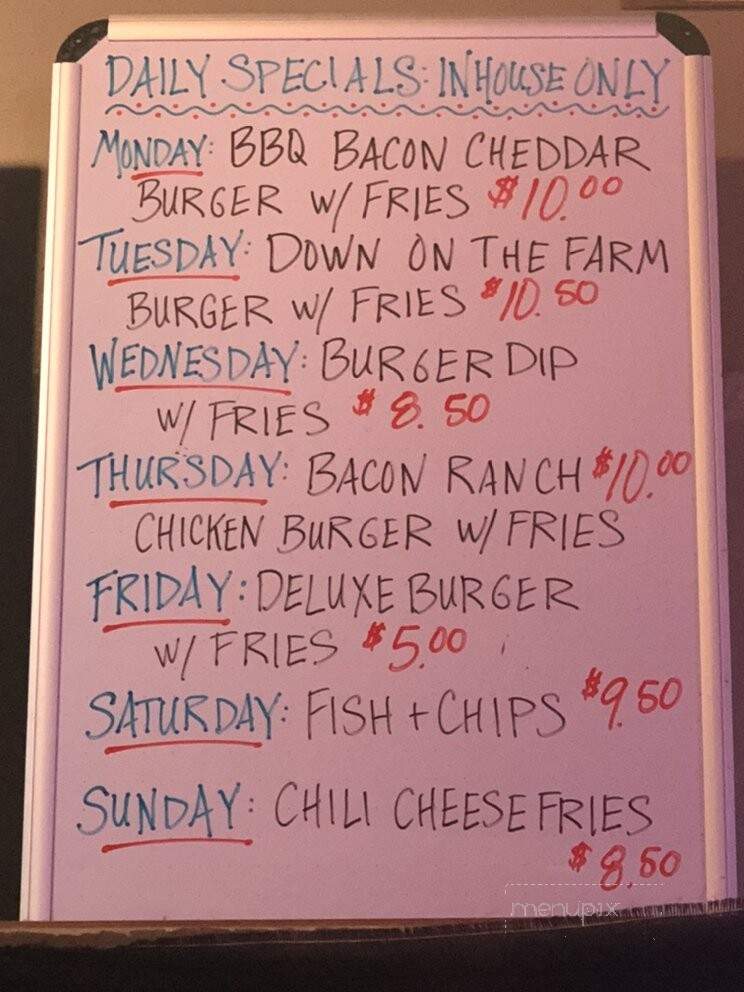 DAILY SPECIALS: IN HOUSE ONLY
MONDAY: BBQ BACON CHEDDAR
BURGER W/ FRIES $10.00
TUESDAY: DOWN ON THE FARM
BURGER W/ FRIES $10.50
WEDNESDAY: BURGER DIP
W/ FRIES $8.50
THURSDAY: BACON RANCH $10.00
CHICKEN BURGER W/ FRIES
FRIDAY: DELUXE BURGER
W/ FRIES $5.00
SATURDAY: FISH + CHIPS $9.50
SUNDAY: CHILI CHEESE FRIES
$8.50
menupix